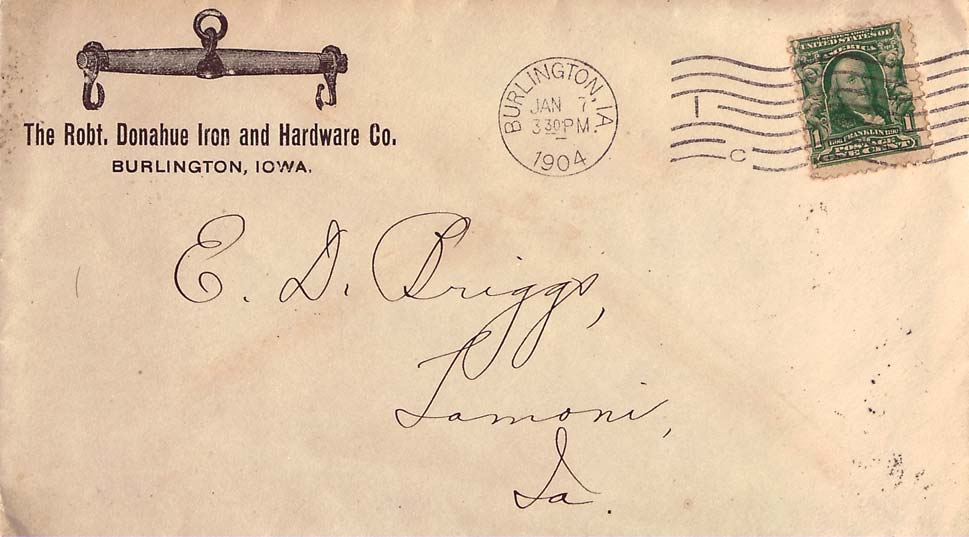 The Robt. Donahue Iron and Hardware Co.
BURLINGTON, IOWA.
BURLINGTON, IA.
JAN 7
3 30 PM
1904
I
C
UNITED STATES OF
AMERICA
1 FRANKLIN 1
POSTAGE
ONE CENT
E. D. Briggs,
Lamoni,
Ia.